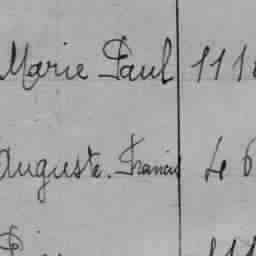 Marie Paul 111
Auguste. Francis Le 6